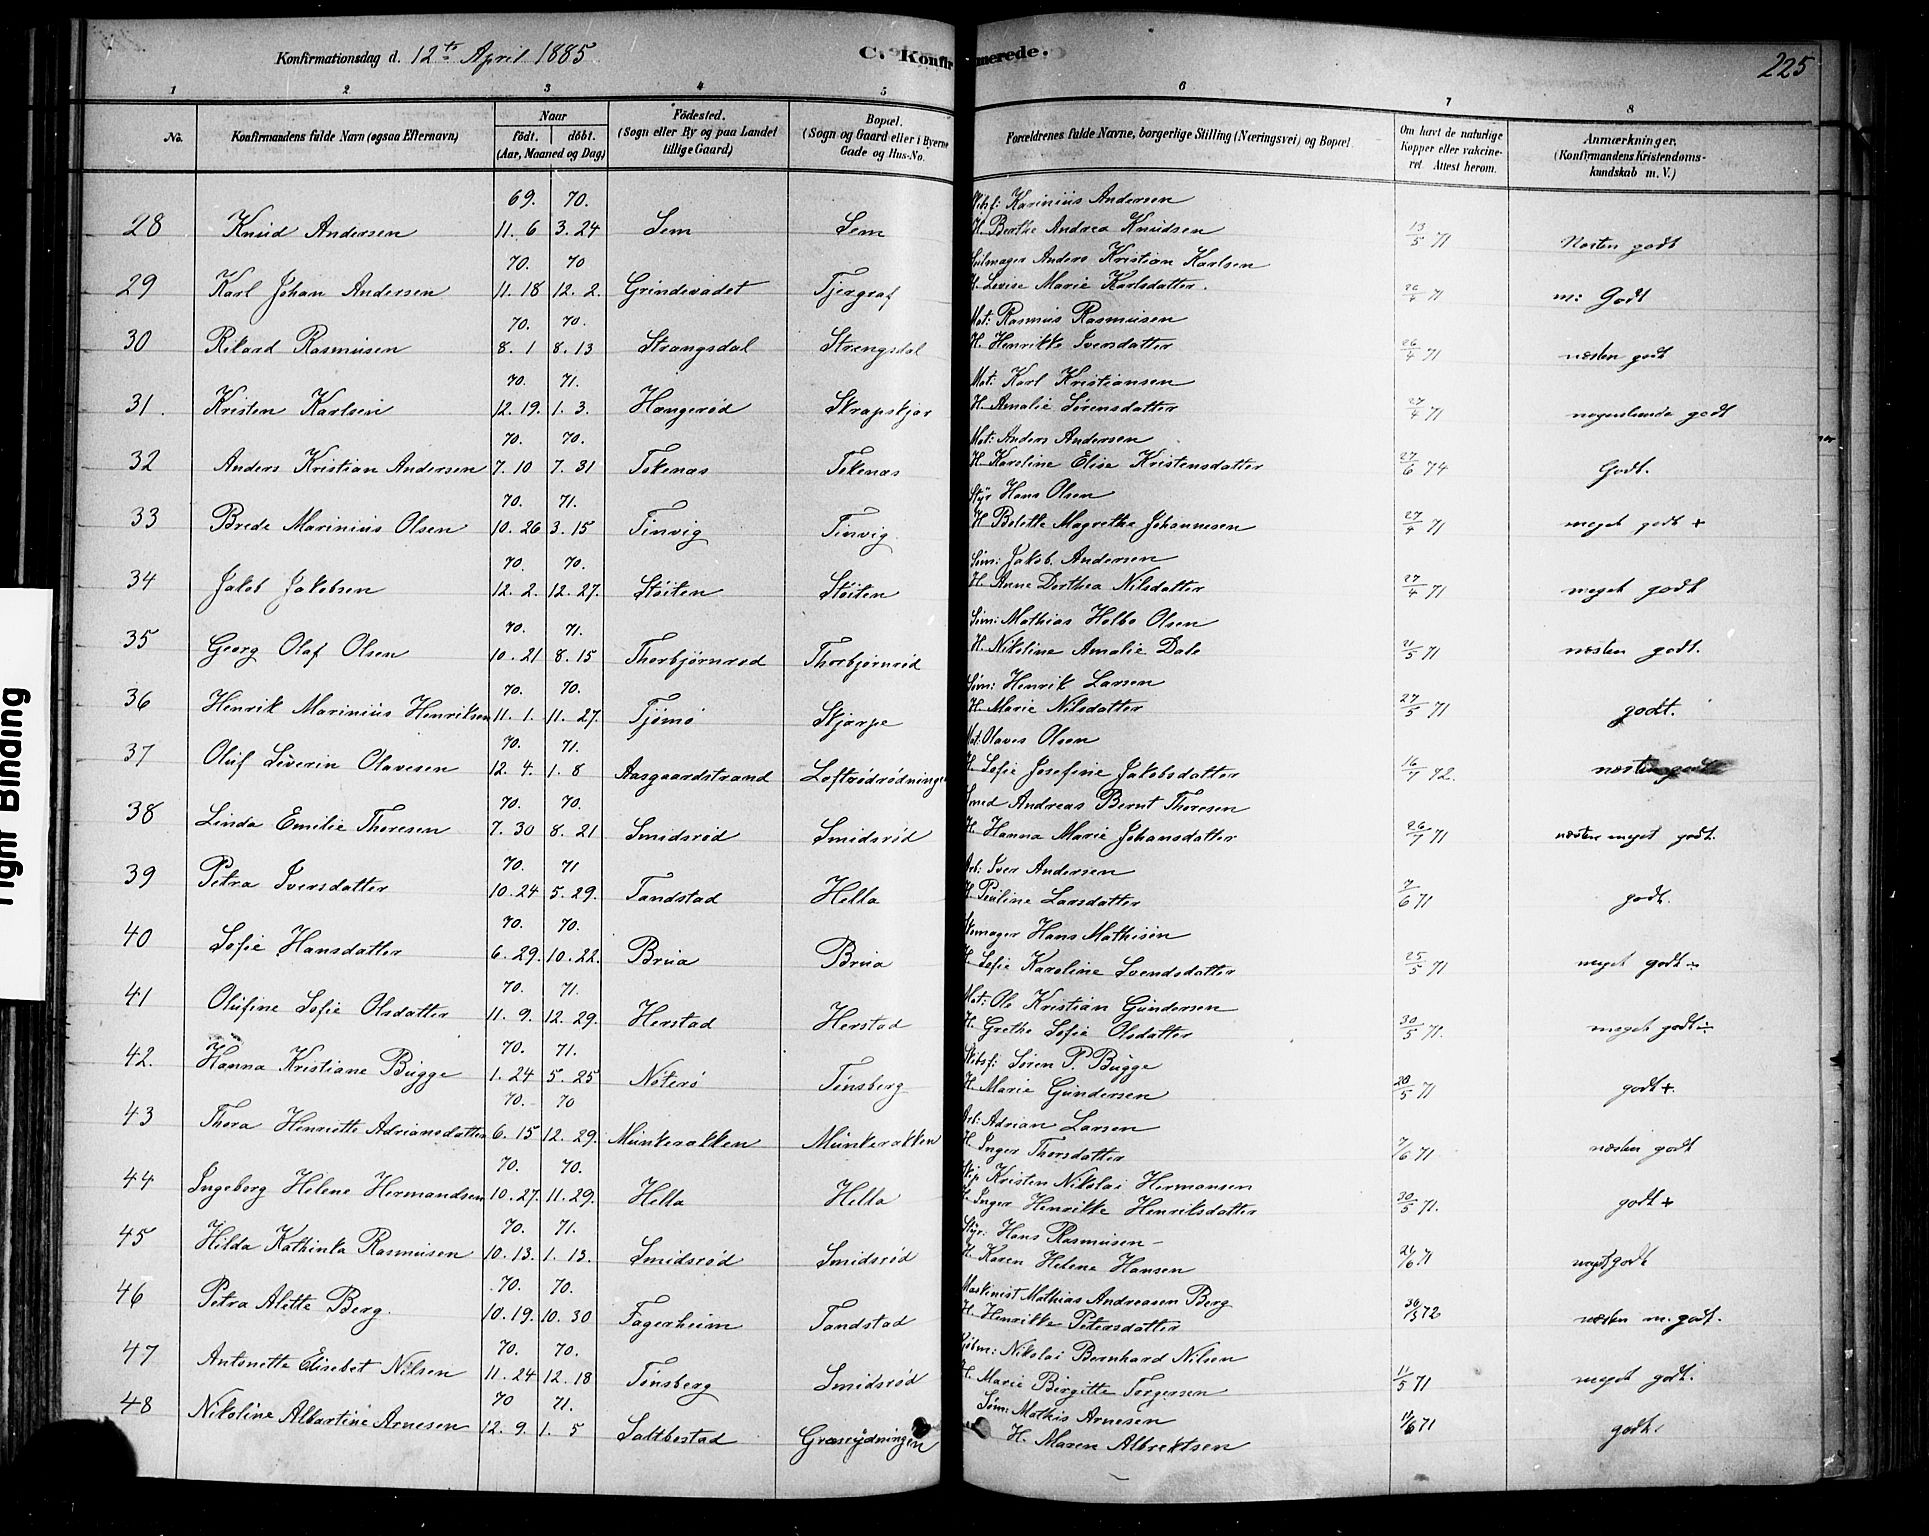 Konfirmationsdag d. 12te April 1885
C. Konfirmerede.
225
1 2 3 4 5 6 7 8
No. Konfirmandens fulde Navn (ogsaa Efternavn) Naar födt. döbt. (Aar, Maaned og Dag) Födested. (Sogn eller By og paa Landet tillige Gaard) Bopæl. (Sogn og Gaard eller i Byerne Gade og Hus-No. Forældrenes fulde Navne, borgerlige Stilling (Næringsvei) og Bopæl. Om havt de naturlige Kopper eller vakcineret. Attest herom. Anmærkninger. (Konfirmandens Kristendomskundskab m. V.)
69. 70. Skibsf: Karinius Andersen
28 Knud Andersen 11. 6 3. 24 Sem Sem H. Berthe Andrea Knudsen 13/5 71 Næsten godt
70. 70 Anders Kristian Karlsen
29 Karl Johan Andersen 11. 18 12. 2. Grindevadet H. Levise Marie Karlsdatter. 71 m: Godt
70. 70. Mat: Rasmus Rasmusen
30 Rikard Rasmusen 8. 1 8. 13 Strangsdal Strengsdal H. Henrikke Iversdatter 26/4 71 næsten godt
70. 71. Mat: Karl Kristiansen
31. Kristen Karlsen 12. 19. 1. 3. Hængerød Skrapskjær H. Amalie Sørensdatter 27/4 71 nogenlunde godt
70. 70. Mat: Anders Andersen
32 Anders Kristian Andersen 7. 10 7. 31 Tokenæs Tokenæs H. Karoline Elise Kristensdatter 27/6 74 Godt.
70. 71. Styr Hans Olsen
33 Brede Marinius Olsen 10. 26 3. 15 Tinvig Tinvig. H Bolette Magrethe Johannesen 27/4 71 meget godt +
70. 70. Søm: Jakob. Andersen
34 Jakob Jakobsen 12. 2. 12. 27. Støiten Støiten H. Anne Dorthea Nilsdatter 27/4 71 meget godt
70. 71. Søm: Mathias Holbo Olsen
35 Georg Olaf Olsen 10. 21 8. 15 Thorbjørnrød Thorbjørnrød H. Nikoline Amalie Dale 21/5 71 næsten godt.
70. 70. Søm: Henrik Larsen
36 Henrik Marinius Henriksen 11. 1. 11. 27. Tjømø Skjærpe H. Marie Nilsdatter 27/5 71 godt.
70. 71. Mat: Olaves Olsen
37 Oluf Severin Olavesen 12. 4. 1. 8 Aasgaardstrand Loftsrødrødningen H. Sofie Josefine Jakobsdatter 16/7 72. næsten godt
70. 70. Smed Andreas Bernt Thoresen
38 Linda Emilie Thoresen 7. 30 8. 21 Smidsrød Smidsrød H. Hanna Marie Johansdatter 26/7 71 næsten meget godt.
70. 71 Arb: Iver Andersen
39 Petra Iversdatter 10. 24 5. 29. Tandstad Hella H. Pauline Larsdatter 7/6 71 godt.
70. 70. Hans Mathisen
40 Sofie Hansdatter 6. 29. 10. 22. Brua Brua H. Sofie Karoline Svendsdatter 25/5 71 meget godt ÷
70. 71. Mat: Ole Kristian Gundersen
41 Olufine Sofie Olsdatter 11. 9. 12. 29. Herstad Herstad H. Grethe Sofie Olsdatter 30/5 71. meget godt ÷
70. 71. Skibsf: Søren P. Bugge
42. Hanna Kristiane Bugge 1. 24 5. 25 Nøterø Tønsberg H. Marie Gundersen 20/5 71 godt +.
70. 70 Arb: Adrian Larsen
43 Thora Henriette Adriansdatter 6. 15 12. 29. Munkerakken Munkerakken H. Inger Thorsdatter 7/6 71 næsten godt
70. 70. Skip Kristen Nikolai Hermansen
44 Ingeborg Helene Hermandsen 10. 27. 11. 29. Hella Hella H. Inger Henrikke Henriksdatter 30/5 71. godt +
70. 71. Styr. Hans Rasmusen
45 Hilda Kathinka Rasmusen 10. 13. 1. 13. Smidsrød Smidsrød H. Karen Helene Hansen 26/6 71 meget godt
70. 70. Maskinist Mathias Andreasen Berg
46 Petra Alette Berg. 10. 19. 10. 30 Fagerheim Tandstad H. Henrikke Petersdatter 30/5 72 næsten m. godt.
70. 70. Nikolai Bernhard Nilsen
47 Antonette Elisebet Nilsen 11. 24 12. 18 Tønsberg Smidsrød H. Marie Birgitte Torgersen 11/5 71 meget godt.
70 71. Søm: Mathis Arnesen
48 Nikoline Albertine Arnesen 12. 9. 1. 5 Saltbostad H. Maren Albrektsen 11/6 71 godt.
Tight Binding